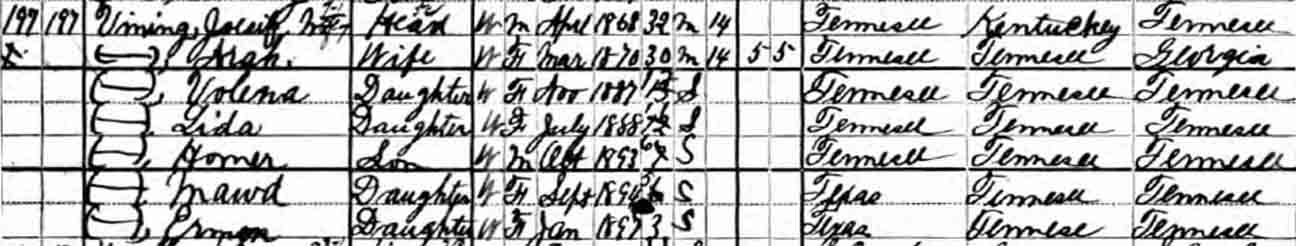 197 197 Vining, Joseph Head W M Aprl 1868 32 M 14 Tennesee Kentuckey Tennesee
Wife W F Mar 1870 30 M 14 5 5 Tennesee Tennesee Georgia
Volena Daughter W F Nov 1887 S Tennesee Tennesee Tennesee
Lida Daughter W F July 1888 S Tennesee Tennesee Tennesee
Homer Son W M 1893 S Tennesee Tennesee Tennesee
Mawd Daughter W F Sept S Texas Tennesee Tennesee
Daughter W F Jan 1897 3 S Texas Tennesee Tennesee